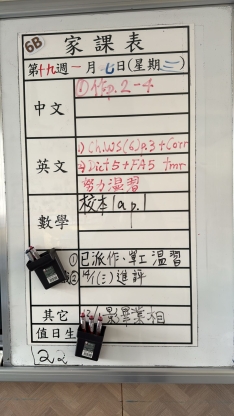 6B
家課表
第十九週一月七日(星期二)
中文
①作p.2-4
英文
1) Ch.WS(6)p.3+Corr
→Dict5+FA5 tmr
努力溫習
數學
校本1a p.1
①已派作、單工溫習
② 14/1(三)進評
其它
影畢業相
值日生
22